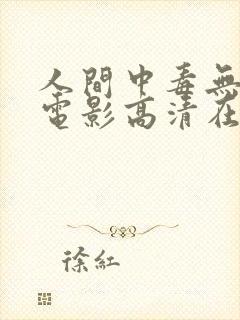 人間中毒無
電影高清在
徐紅